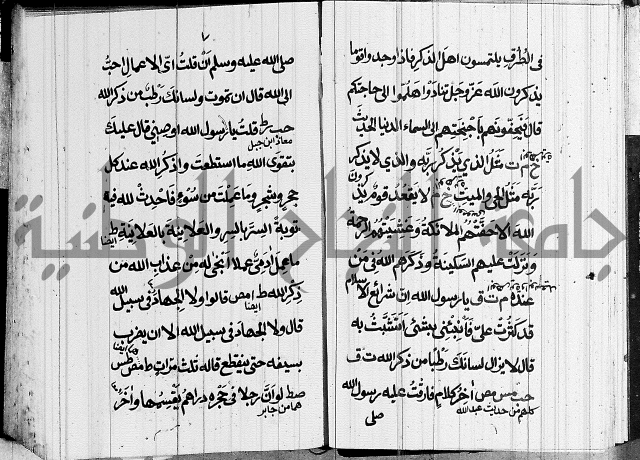 في الطرق يلتمسون اهل الذكر فاذا وجدوا قوما
يذكرون الله عز وجل تنادوا هلموا الى حاجتكم
قال فيحفونهم باجنحتهم الى السماء الدنيا الحديث
خ م ت مثل الذي يذكر ربه والذي لا يذكر
ربه مثل الحي والميت خ م لا يقعد قوم يذكرون
الله الا حفتهم الملائكة وغشيتهم الرحمة
ونزلت عليهم السكينة وذكرهم الله في من
عنده م ت ق يا رسول الله ان شرائع الاسلام
قد كثرت علي فانبئني بشئ اتشبث به
قال لا يزال لسانك رطبا من ذكر الله ت ق
حب مس مص اخر كلام فارقت عليه رسول الله
كلهم من حديث عبد الله
صلى
٧
صلى الله عليه وسلم ان قلت اي الاعمال احب
الى الله قال ان تموت ولسانك رطب من ذكر الله
حب ط قلت يا رسول الله اوصني قال عليك
معاذ ابن جبل
بتقوى الله ما استطعت واذكر الله عند كل
حجر وشجر وما عملت من سوء فاحدث لله فيه
توبة السر بالسر والعلانية بالعلانية ط
ايضا
ما عمل ادمي عملا انجى له من عذاب الله من
ذكر الله ط ا مص قالوا ولا الجهاد في سبيل الله
ايضا
قال ولا الجهاد في سبيل الله الا ان يضرب
بسيفه حتى ينقطع قاله ثلث مرات ط مص طس
صط لو ان رجلا في حجره دراهم يقسمها واخر
هما من جابر
جامعة النجاح الوطنية